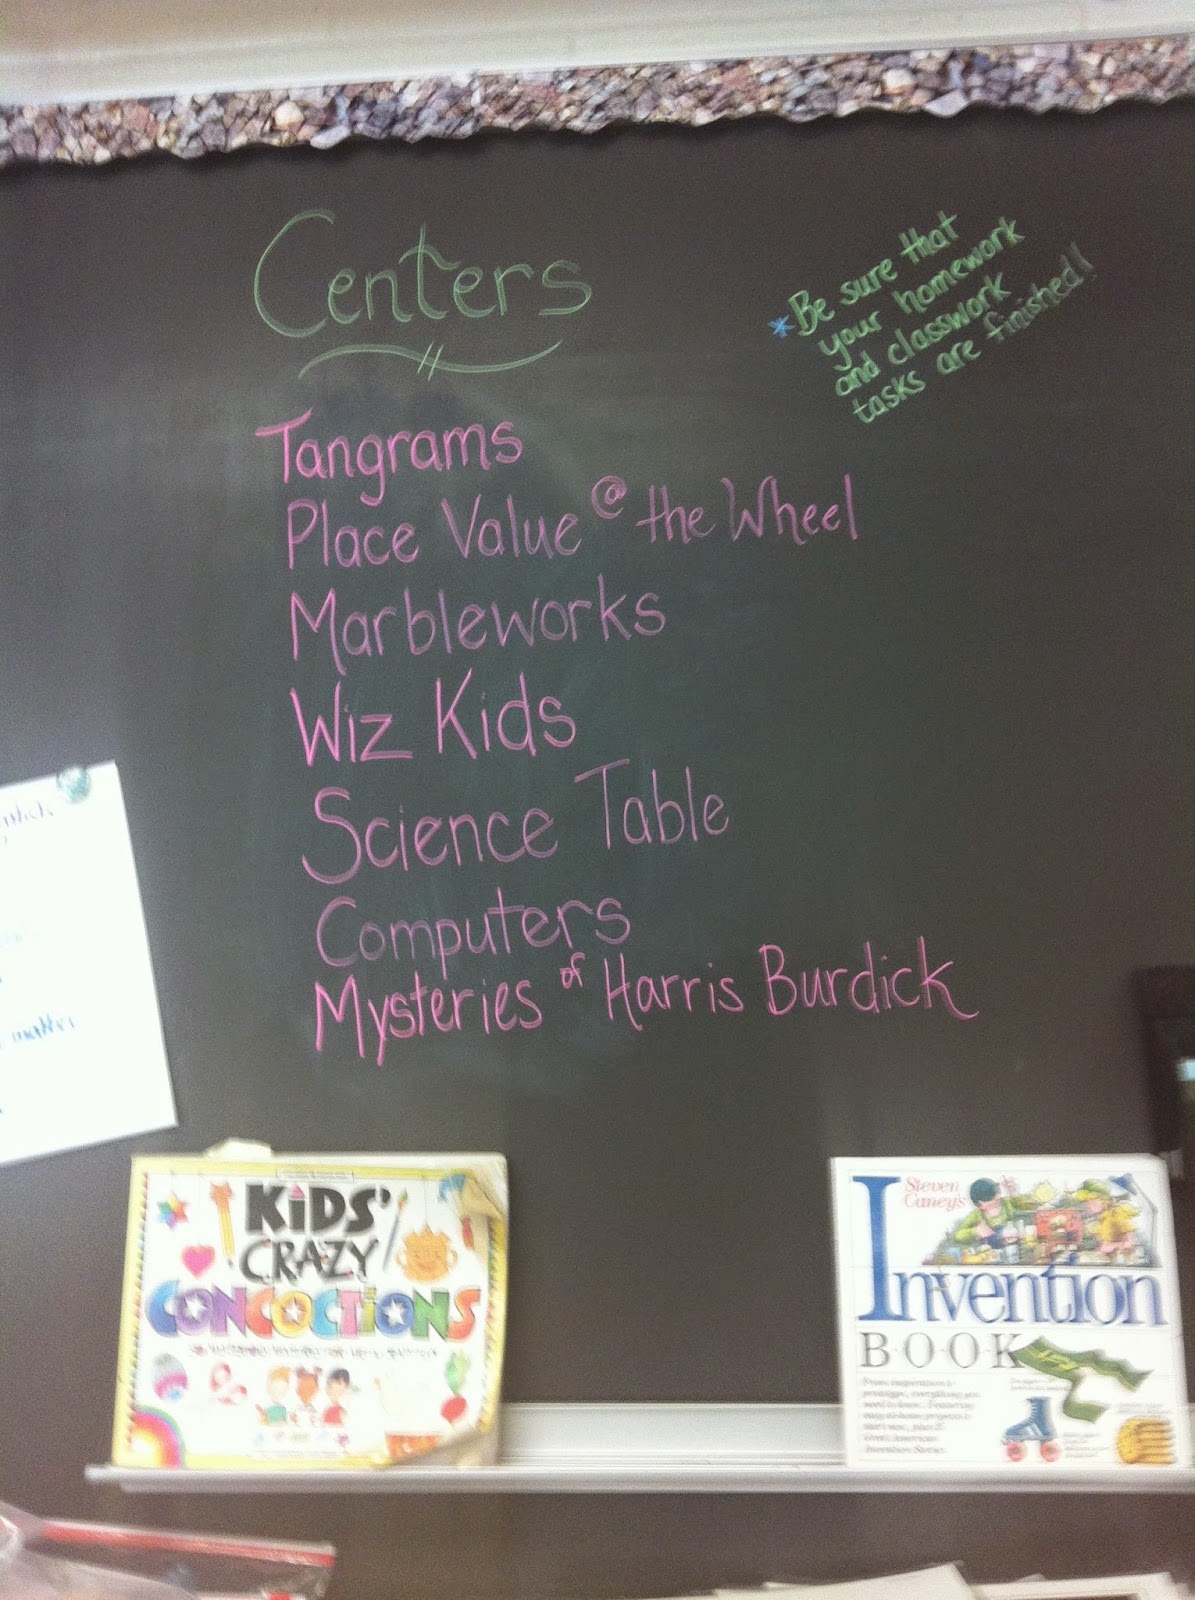 Centers
* Be sure that
your homework
and classwork
tasks are finished!
Tangrams
Place Value @ the Wheel
Marbleworks
Wiz Kids
Science Table
Computers
Mysteries of Harris Burdick
matter
KiDS'
CRAZY
CONCOCTiONS
Steven
Caney's
Invention
B·O·O·K